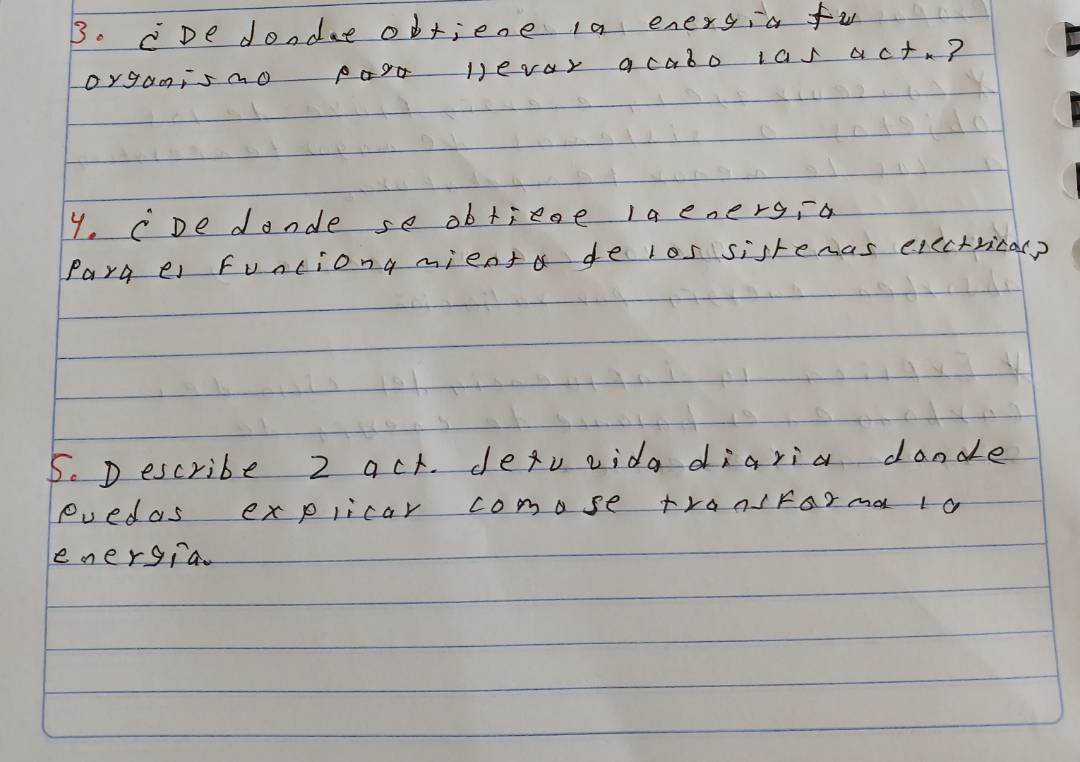 3. ¿De donde obtiene la energía tu
organismo para llevar acabo las act.?
4. ¿De donde se obtiene la energía
para el funcionamiento de los sistemas electricos?
5. Describe 2 act. de tu vida diaria donde
puedas explicar como se transforma la
energía.